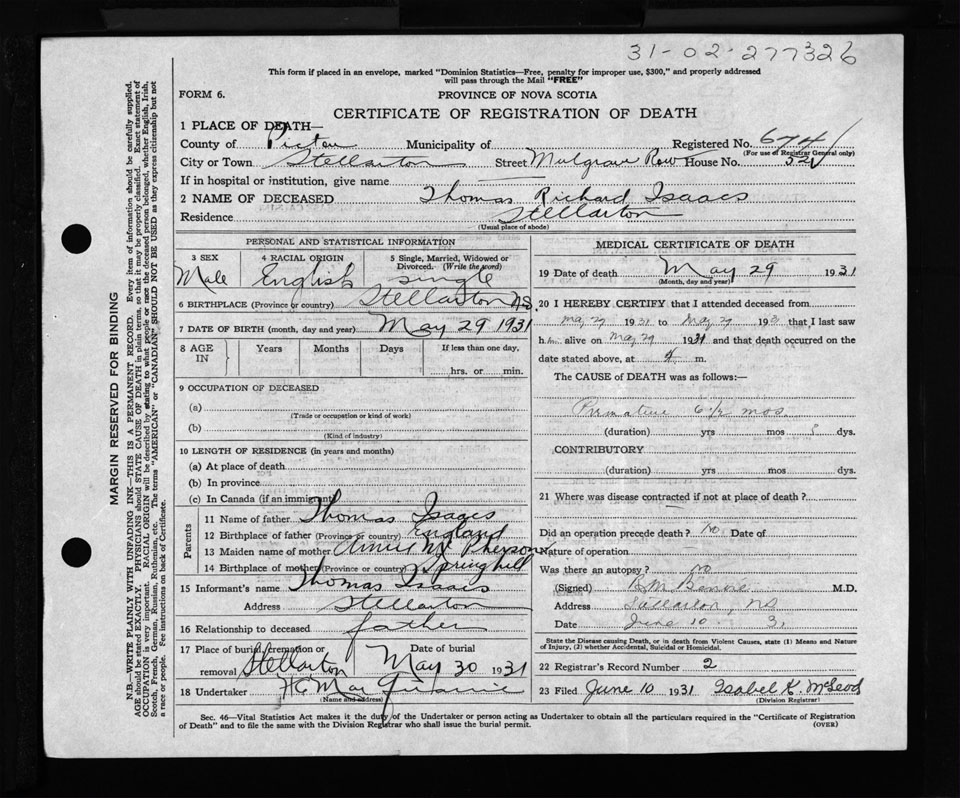 31-02-277326
This form if placed in an envelope, marked "Dominion Statistics—Free, penalty for improper use, $300," and properly addressed
will pass through the Mail "FREE"
FORM 6.
PROVINCE OF NOVA SCOTIA
CERTIFICATE OF REGISTRATION OF DEATH
1 PLACE OF DEATH—
County of Pictou Municipality of Registered No. 674
(For use of Registrar General only)
City or Town Stellarton Street Mulgrave Row House No. 52
If in hospital or institution, give name
2 NAME OF DECEASED Thomas Richard Isaacs
Residence Stellarton
(Usual place of abode)
PERSONAL AND STATISTICAL INFORMATION
3 SEX 4 RACIAL ORIGIN 5 Single, Married, Widowed or
Divorced. (Write the word)
Male English single
6 BIRTHPLACE (Province or country) Stellarton N.S.
7 DATE OF BIRTH (month, day and year) May 29 1931
8 AGE IN Years Months Days If less than one day,
hrs. or min.
9 OCCUPATION OF DECEASED
(a)
(Trade or occupation or kind of work)
(b)
(Kind of industry)
10 LENGTH OF RESIDENCE (in years and months)
(a) At place of death
(b) In province
(c) In Canada (if an immigrant)
Parents
11 Name of father Thomas Isaacs
12 Birthplace of father (Province or country) England
13 Maiden name of mother McPherson
14 Birthplace of mother (Province or country) Springhill
15 Informant's name Thomas Isaacs
Address Stellarton
16 Relationship to deceased father
17 Place of burial, cremation or removal Stellarton Date of burial May 30 1931
18 Undertaker
(Name and address)
MEDICAL CERTIFICATE OF DEATH
19 Date of death May 29 1931
(Month, day and year)
20 I HEREBY CERTIFY that I attended deceased from
May 29 1931 to May 29 1931 that I last saw
h alive on May 29 1931 and that death occurred on the
date stated above, at 4 m.
The CAUSE of DEATH was as follows:—
Premature 6½ mos.
(duration) yrs mos dys.
CONTRIBUTORY
(duration) yrs mos dys.
21 Where was disease contracted if not at place of death?
Did an operation precede death? no Date of
Nature of operation
Was there an autopsy? no
(Signed) M.D.
Address Stellarton, NS
Date June 10 31
State the Disease causing Death, or in death from Violent Causes, state (1) Means and Nature
of Injury, (2) whether Accidental, Suicidal or Homicidal.
22 Registrar's Record Number 2
23 Filed June 10 1931 Isabel K. McLeod
(Division Registrar)
Sec. 46—Vital Statistics Act makes it the duty of the Undertaker or person acting as Undertaker to obtain all the particulars required in the "Certificate of Registration
of Death" and to file the same with the Division Registrar who shall issue the burial permit.
(OVER)
MARGIN RESERVED FOR BINDING
N.B.—WRITE PLAINLY WITH UNFADING INK—THIS IS A PERMANENT RECORD. Every item of information should be carefully supplied.
AGE should be stated EXACTLY. PHYSICIANS should STATE CAUSE OF DEATH in plain terms, so that it may be properly classified. Exact statement of
OCCUPATION is very important. RACIAL ORIGIN will be described by stating to what people or race the deceased person belonged, whether English, Irish,
Scotch, French, German, Russian, Ruthenian, etc. The terms "AMERICAN" or "CANADIAN" SHOULD NOT BE USED as they express citizenship but not
a race or people. Fee instructions on back of Certificate.